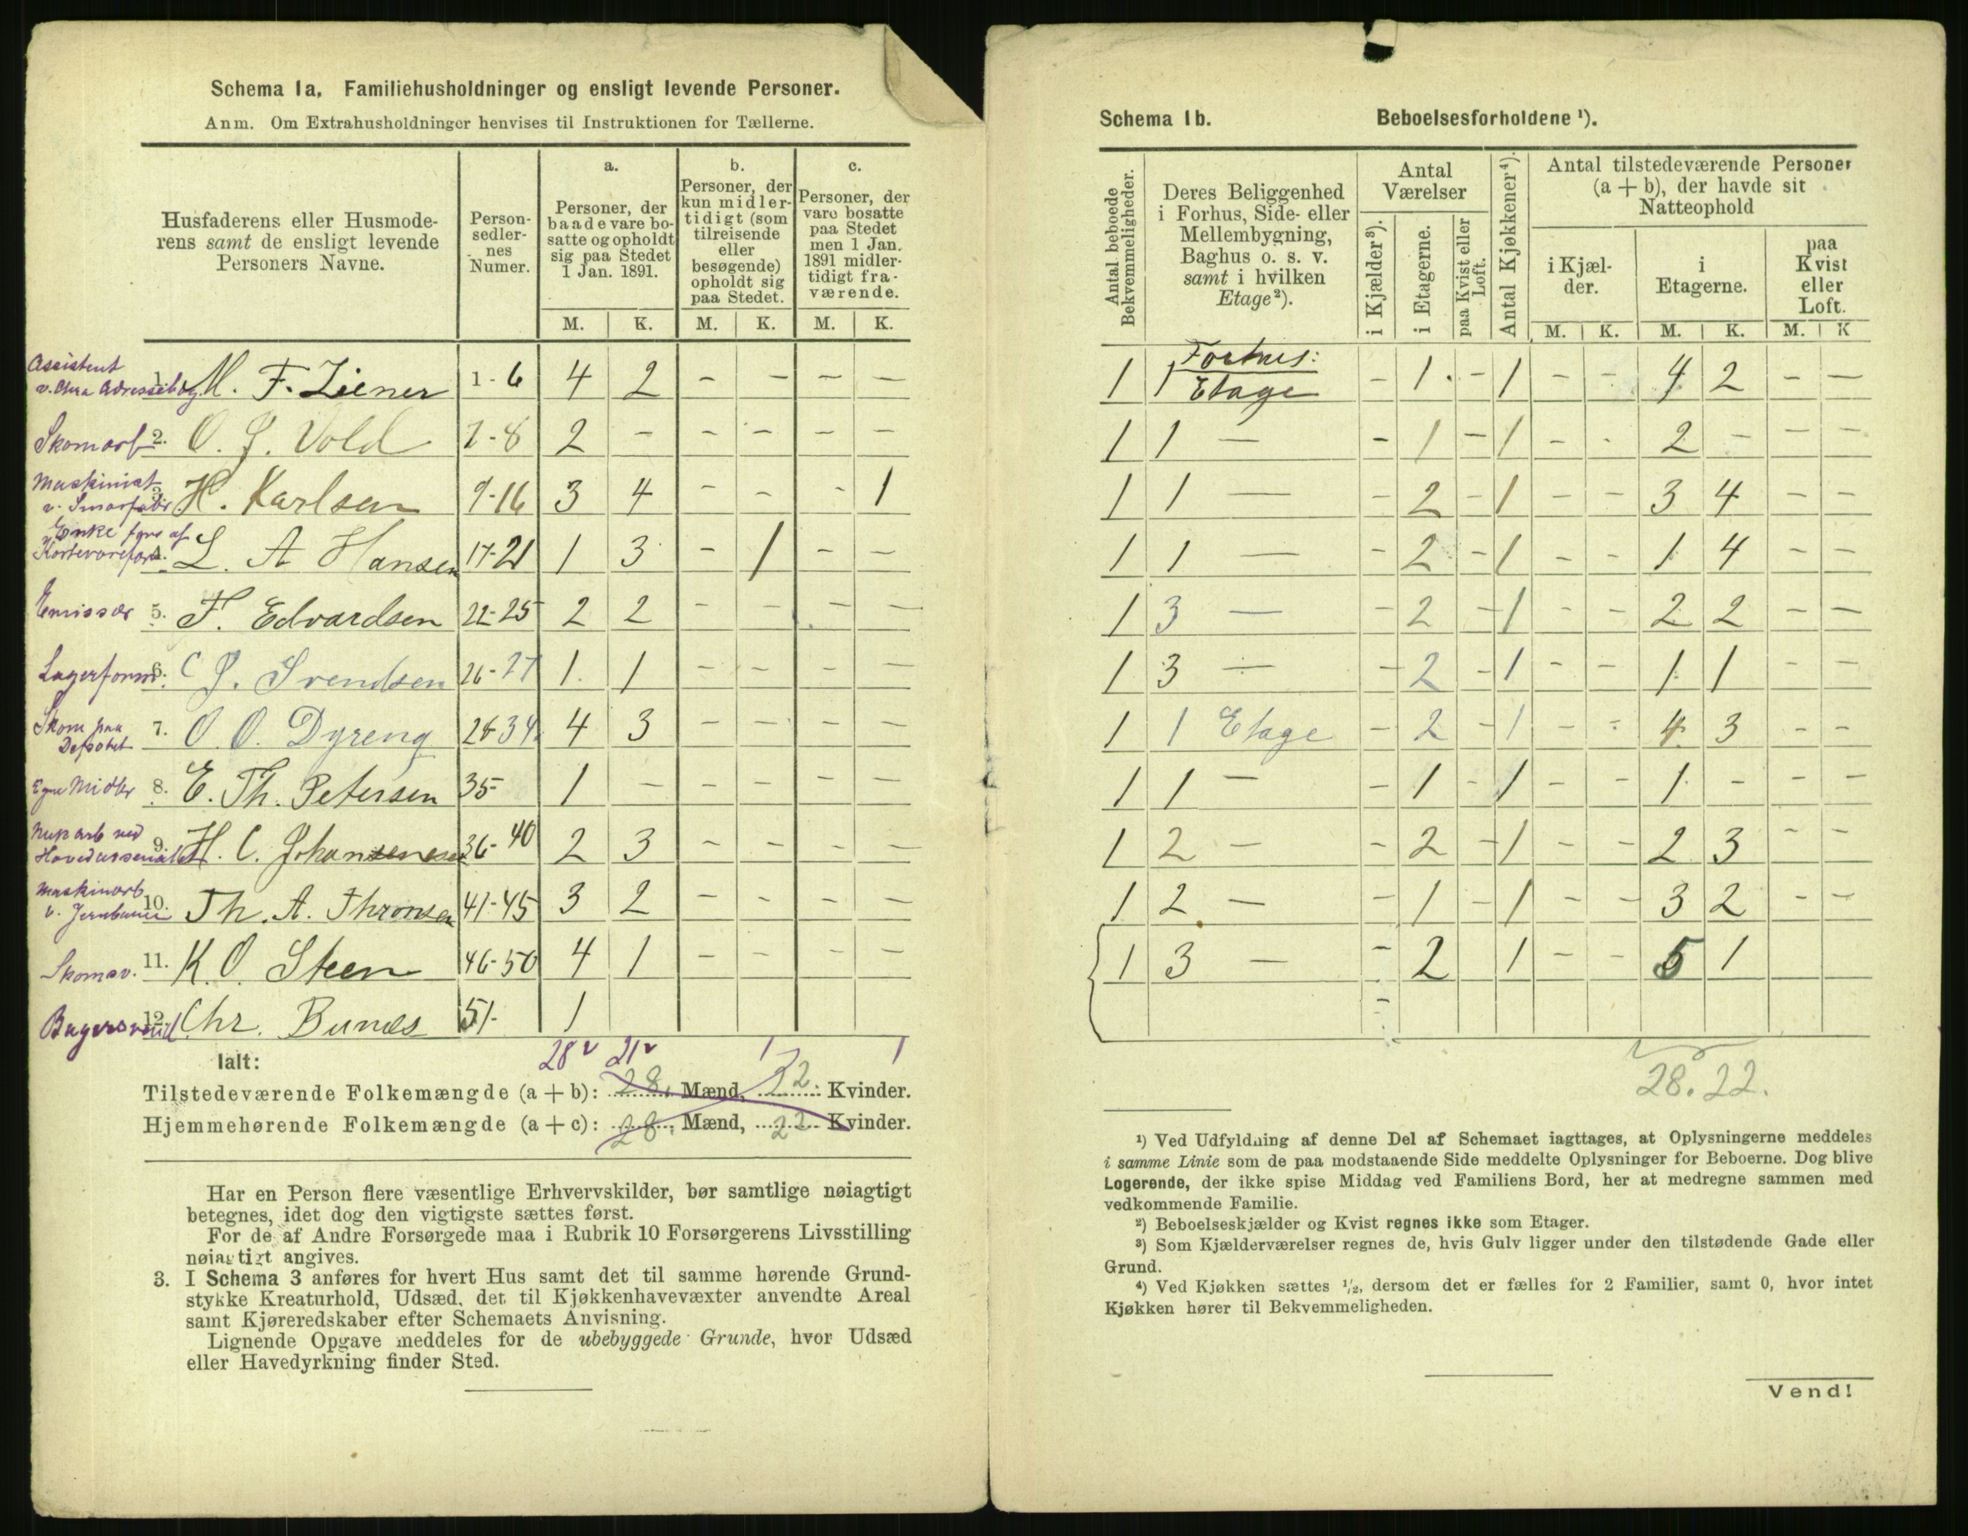 Schema 1a. Familiehusholdninger og ensligt levende Personer.
Anm. Om Extrahusholdninger henvises til Instruktionen for Tællerne.
Husfaderens eller Husmoderens samt de ensligt levende Personers Navne.
Personsedlernes Numer.
a. Personer, der baade vare bosatte og opholdt sig paa Stedet 1 Jan. 1891.
b. Personer, der kun midlertidigt (som tilreisende eller besøgende) opholdt sig paa Stedet.
c. Personer, der vare bosatte paa Stedet men 1 Jan. 1891 midlertidigt fraværende.
M. K. M. K. M. K.
Assistent
v. Chra Adressebog 1. M. F. Ziener 1-6 4 2 - - - -
Skomarb 2. O. J. Vold 7-8 2 - - - - -
Maskinist
v. Smørfabr 3. H. Karlsen 9-16 3 4 - - - 1
Enke førs af
4. L. A Hansen 17-21 1 3 - 1 - -
Emissær 5. F. Edvardsen 22-25 2 2 - - - -
Lagerform. 6. C J. Svendsen 26-27 1 1 - - - -
Skom paa
Depotet 7. O. O. Dyreng 28-34 4 3 - - - -
Egne Midler 8. E. Th. Petersen 35- 1 - - - - -
arb ved
Hovedarsenalet 9. H. C. Johansen 36-40 2 3 - - - -
Maskinarb
v. Jernbanen 10. Th. A. Thronsen 41-45 3 2 - - - -
Skomsv. 11. K. O. Steen 46-50 4 1 - - - -
Bagersvend 12. Chr. 51- 1
Ialt: 28 21 1 1
Tilstedeværende Folkemængde (a + b): 28. Mænd, 22 Kvinder.
Hjemmehørende Folkemængde (a + c): 28. Mænd, 22 Kvinder.
Har en Person flere væsentlige Erhvervskilder, bør samtlige nøiagtigt
betegnes, idet dog den vigtigste sættes først.
For de af Andre Forsørgede maa i Rubrik 10 Forsørgerens Livsstilling
nøiagtigt angives.
3. I Schema 3 anføres for hvert Hus samt det til samme hørende Grund-
stykke Kreaturhold, Udsæd, det til Kjøkkenhavevæxter anvendte Areal
samt Kjøreredskaber efter Schemaets Anvisning.
Lignende Opgave meddeles for de ubebyggede Grunde, hvor Udsæd
eller Havedyrkning finder Sted.
Schema 1b. Beboelsesforholdene ¹).
Antal beboede Bekvemmeligheder.
Deres Beliggenhed i Forhus, Side- eller Mellembygning, Baghus o. s. v. samt i hvilken Etage ²).
Antal Værelser
i Kjælder ³).
i Etagerne.
paa Kvist eller Loft.
Antal Kjøkkener ⁴).
Antal tilstedeværende Personer (a + b), der havde sit Natteophold
i Kjælder.
i Etagerne.
paa Kvist eller Loft.
M. K. M. K. M. K
Forhus:
1 1 Etage - 1 - 1 - - 4 2 - -
1 1 — - 1 - 1 - - 2 - - -
1 1 — - 2 - 1 - - 3 4 - -
1 1 — - 2 - 1 - - 1 4 - -
1 3 — - 2 - 1 - - 2 2 - -
1 3 — - 2 - 1 - - 1 1 - -
1 1 Etage - 2 - 1 - - 4 3 - -
1 1 — - 1 - 1 - - 1 - - -
1 2 — - 2 - 1 - - 2 3 - -
1 2 — - 1 - 1 - - 3 2 - -
1 3 — - 2 1 - - 5 1
-
28. 22.
¹) Ved Udfyldning af denne Del af Schemaet iagttages, at Oplysningerne meddeles
i samme Linie som de paa modstaaende Side meddelte Oplysninger for Beboerne. Dog blive
Logerende, der ikke spise Middag ved Familiens Bord, her at medregne sammen med
vedkommende Familie.
²) Beboelseskjælder og Kvist regnes ikke som Etager.
³) Som Kjælderværelser regnes de, hvis Gulv ligger under den tilstødende Gade eller
Grund.
⁴) Ved Kjøkken sættes ½, dersom det er fælles for 2 Familier, samt 0, hvor intet
Kjøkken hører til Bekvemmeligheden.
Vend!